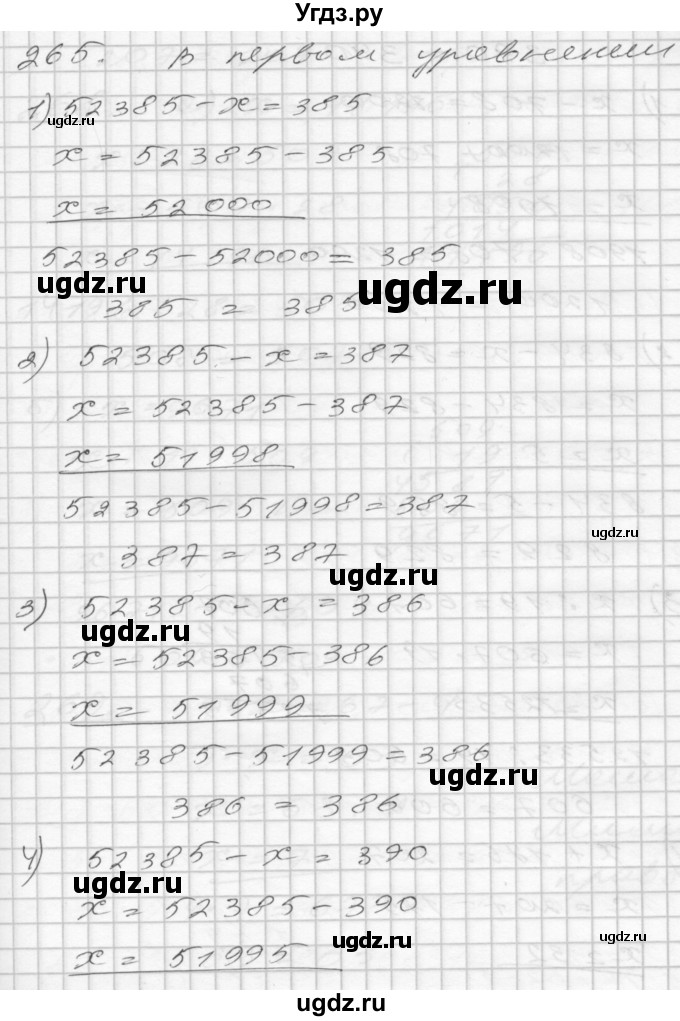 Угдз.ру
265. В первом уравнении
1) 52385 - x = 385
ugdz.ru
x = 52385 - 385
x = 52000
ugdz.ru
52385 - 52000 = 385
ugdz.ru
ugdz.ru
385 = 385
2) 52385 - x = 387
x = 52385 - 387
x = 51998
52385 - 51998 = 387
ugdz.ru
387 = 387
ugdz.ru
3) 52385 - x = 386
ugdz.ru
x = 52385 - 386
x = 51999
52385 - 51999 = 386
ugdz.ru
386 = 386
4) 52385 - x = 390
ugdz.ru
x = 52385 - 390
x = 51995
ugdz.ru
ugdz.ru